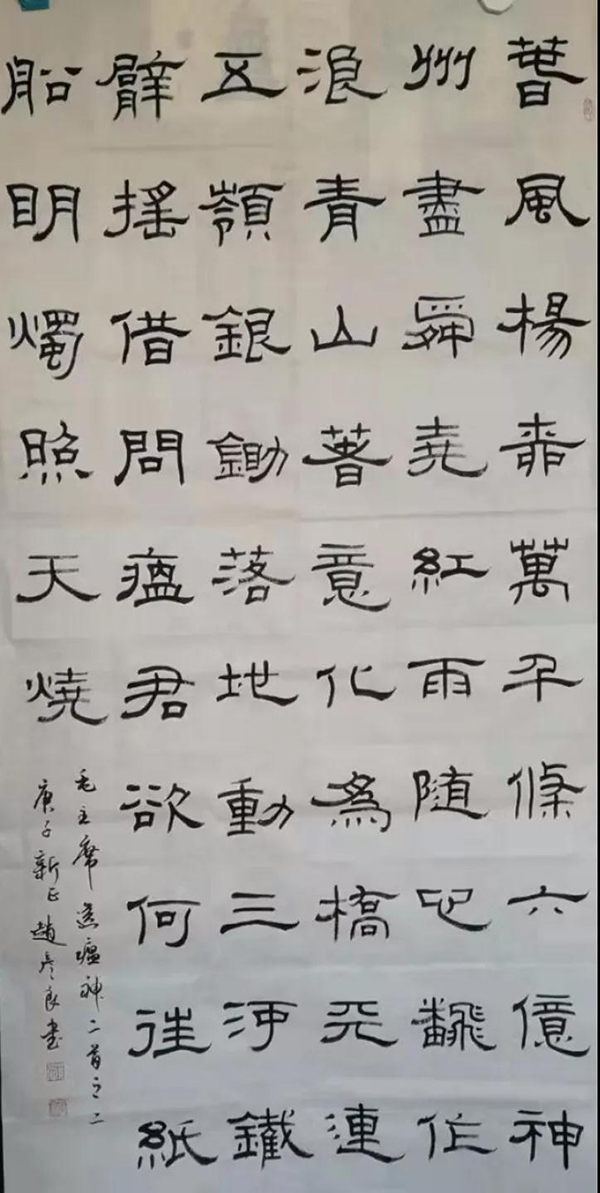 春風楊柳萬千條六億神
州盡舜堯紅雨随心飜作
浪青山著意化為橋天連
五嶺銀鋤落地動三河鐵
臂搖借問瘟君欲何往紙
船明燭照天燒
毛主席送瘟神二首之二
庚子新正趙彥良書